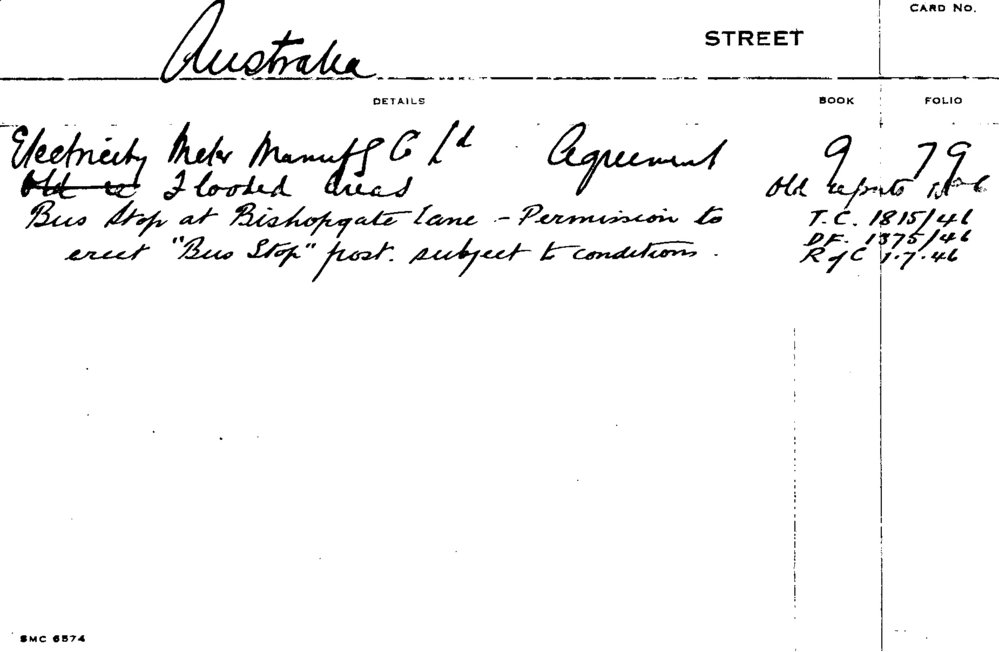 CARD No.
Australia STREET
DETAILS BOOK FOLIO
Electricity Meter Manuf'g Co Ld Agreement 9 79
Old re Flooded areas Old reports
Bus Stop at Bishopgate Lane - Permission to T.C. 1815/46
erect "Bus Stop" post. subject to conditions. D.F. 1375/46
R of C 1.7.46
SMC 6574